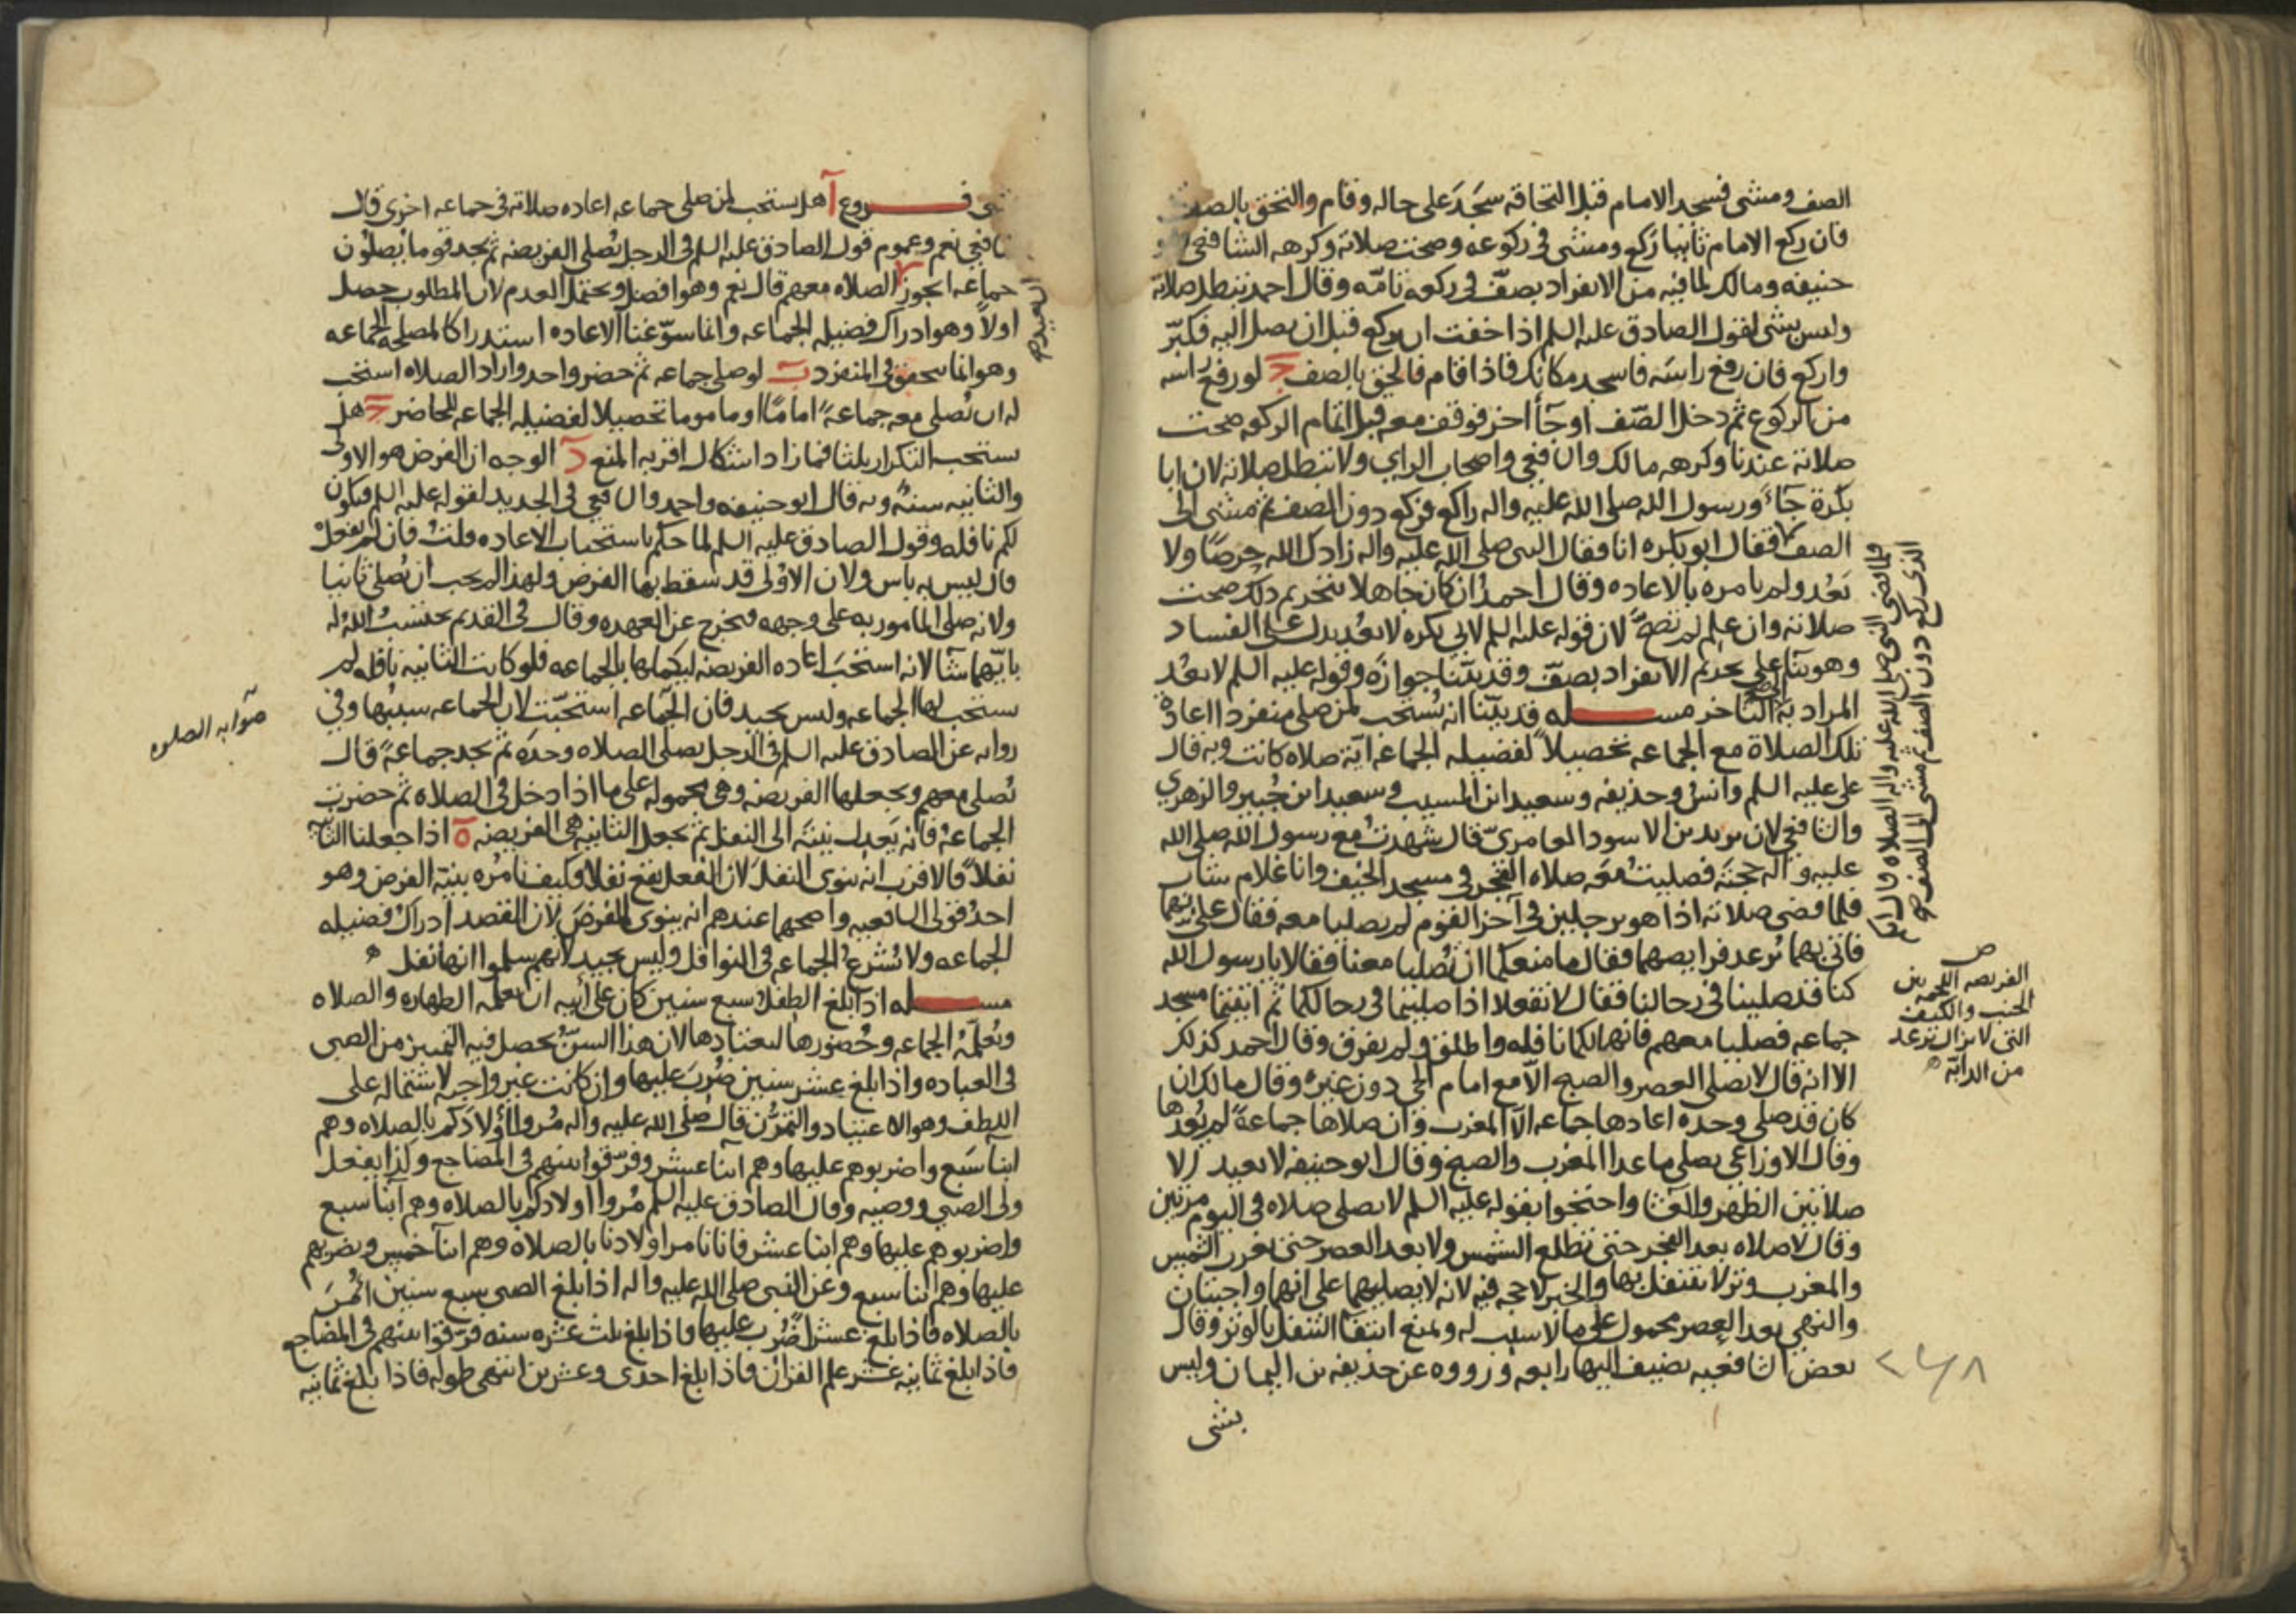 الصف ومشى فسجد الامام قبل التحاقه سجد على حاله وقام والتحق بالصف
فان ركع الامام ثانيا ركع ومشى في ركوعه وصحت صلاته وكرهه الشافعي وابو
حنيفه ومالك لما فيه من الانفراد بصف في ركعه تامه وقال احمد تبطل صلاته
وليس بشى لقول الصادق عليه السلم اذا خفت ان يركع قبل ان يصل اليه فكبر
واركع فان رفع راسه فاسجد مكانك فاذا قام فالحق بالصف ج لو رفع راسه
من الركوع ثم دخل الصف او جآ اخر فوقف معه قبل اتمام الركعه صحت
صلاته عندنا وكرهه مالك والشافعي واصحاب الراي ولا تبطل صلاته لان ابا
بكرة جاء ورسول الله صلى الله عليه واله راكع فركع دون الصف ثم مشى الى
الصف فقال ابو بكره انا فقال النبى صلى الله عليه واله زادك الله حرصا ولا
تعد ولم يامره بالاعاده وقال احمد ان كان جاهلا بتحريم ذلك صحت
صلاته وان علم لم تصح لان قوله عليه السلم لابي بكره لا تعد يدل على الفساد
وهو بنآ على تحريم الانفراد بصف وقد بينا جوازه وقوله عليه السلم لا تعد
المراد به التاخر مسله قد بينا انه يستحب لمن صلى منفردا اعادة
تلك الصلاة مع الجماعه تحصيلا لفضيله الجماعه اية صلاه كانت وبه قال
على عليه السلم وانس وحذيفه وسعيد ابن المسيب وسعيد ابن جبير والزهري
والشافعي لان يزيد بن الاسود العامري قال شهدت مع رسول الله صلى الله
عليه واله حجته فصليت معه صلاه الفجر في مسجد الخيف وانا غلام شاب
فلما قضى صلاته اذا هو برجلين في آخر القوم لم يصليا معه فقال علي بهما
فاتي بهما ترعد فرايصهما فقال ما منعكما ان تصليا معنا فقالا يا رسول الله
كنا قد صلينا في رحالنا فقال لا تفعلا اذا صليتما في رحالكما ثم اتيتما مسجد
جماعه فصليا معهم فانها لكما نافله واطلق ولم يفرق وقال احمد كذلك
الا انه قال لا يصلى العصر والصبح الا مع امام الحي دون غيره وقال مالك ان
كان قد صلى وحده اعادها جماعه الا المغرب وان صلاها جماعة لم يعدها
وقال الاوزاعي يصلى ما عدا المغرب والصبح وقال ابو حنيفه لا يعيد الا
صلاتين الظهر والعشا واحتجوا بقوله عليه السلم لا يصلى صلاه في اليوم مرتين
وقال لا صلاه بعد الفجر حتى تطلع الشمس ولا بعد العصر حتى تغرب الشمس
والمغرب وتر لا يتنفل بها والخبر لا حجه فيه لانه لا يصليهما على انهما واجبتان
والنهي بعد العصر محمول على ما لا سبب له ونمنع انتفآ التنفل بالوتر وقال
بعض الشافعيه يضيف اليها رابعه ورووه عن حذيفه بن اليمان وليس
بشى
فلما انقضى النبى صلى الله عليه واله الصلاه قال ايكم
الذى ركع دون الصف ثم مشى الى الصف صح
ص
الفريصه اللحمه بين
الجنب والكتف
التى لا يزال ترعد
من الدابة
٢٤٨
بشى فروع آ هل يستحب لمن صلى جماعه اعاده صلاته في جماعه اخرى قال
الشافعي نعم وعموم قول الصادق عليه السلم في الرجل يصلى الفريضه ثم يجد قوما يصلون
جماعه ايجوز الصلاه معهم قال نعم وهو افضل ويحتمل العدم لان المطلوب حصل
اولا وهو ادراك فضيله الجماعه وانما سوغنا الاعاده استدراكا لمصلحه الجماعه
وهو انما يتحقق في المنفرد ب لو صلى جماعه ثم حضر واحد واراد الصلاه استحب
له ان يصلى معه جماعة اماما او ماموما تحصيلا لفضيله الجماعه للحاضر ج هل
يستحب التكرار ثلثا فما زاد اشكال اقربه المنع د الوجه ان الفرض هو الاولى
والثانيه سنة وبه قال ابو حنيفه واحمد والشافعي في الجديد لقوله عليه السلم فيكون
لكم نافله وقول الصادق عليه السلم لما حكم باستحباب الاعاده قلت فان لم يفعل
قال ليس به باس ولان الاولى قد سقط بها الفرض ولهذا لم يجب ان يصلى ثانيا
ولانه صلى المامور به على وجهه فيخرج عن العهده وقال في القديم يحتسب الله له
بايهما شآ لانه استحب اعاده الفريضه ليكملها بالجماعه فلو كانت الثانيه نافله لم
يستحب لها الجماعه وليس بجيد فان الجماعه استحبت لان الجماعه سببها وفي
روايه عن الصادق عليه السلم في الرجل يصلى الصلاه وحده ثم يجد جماعة قال
يصلى معهم ويجعلها الفريضه وهى محموله على ما اذا دخل في الصلاه ثم حضرت
الجماعه فانه يعدل بنيته الى النفل ثم يجعل الثانيه هي الفريضه ه اذا جعلنا الثانيه
نفلا فالاقرب انه ينوى النفل لان الفعل يقع نفلا فكيف نامره بنية الفرض وهو
احد قولى الشافعيه واصحهما عندهم انه ينوى الفرض لان القصد ادراك فضيله
الجماعه ولا تشرع الجماعه في النوافل وليس بجيد لانهم سلموا انها نفل ه
مسله اذا بلغ الطفل سبع سنين كان على ابيه ان يعلمه الطهاره والصلاه
ويعلمه الجماعه وحضورها ليعتادها لان هذا السن يحصل فيه التمييز من الصبى
في العباده واذا بلغ عشر سنين ضرب عليها وان كانت غير واجبه لاشتماله على
اللطف وهو الاعتياد والتمرن قال صلى الله عليه واله مروا اولادكم بالصلاه وهم
ابنا سبع واضربوهم عليها وهم ابنا عشر وفرقوا بينهم في المضاجع وكذا يفعل
ولى الصبي ووصيه وقال الصادق عليه السلم مروا اولادكم بالصلاه وهم ابنا سبع
واضربوهم عليها وهم ابنا عشر فانا نامر اولادنا بالصلاه وهم ابنآ خمس ونضربهم
عليها وهم ابنا سبع وعن النبى صلى الله عليه واله اذا بلغ الصبى سبع سنين امر
بالصلاه فاذا بلغ عشرا ضرب عليها فاذا بلغ ثلث عشره سنه فرقوا بينهم في المضاجع
فاذا بلغ ثمانيه عشر علم القران فاذا بلغ احدى وعشرين انتهى طوله فاذا بلغ ثمانيه
صوابه الصلوه